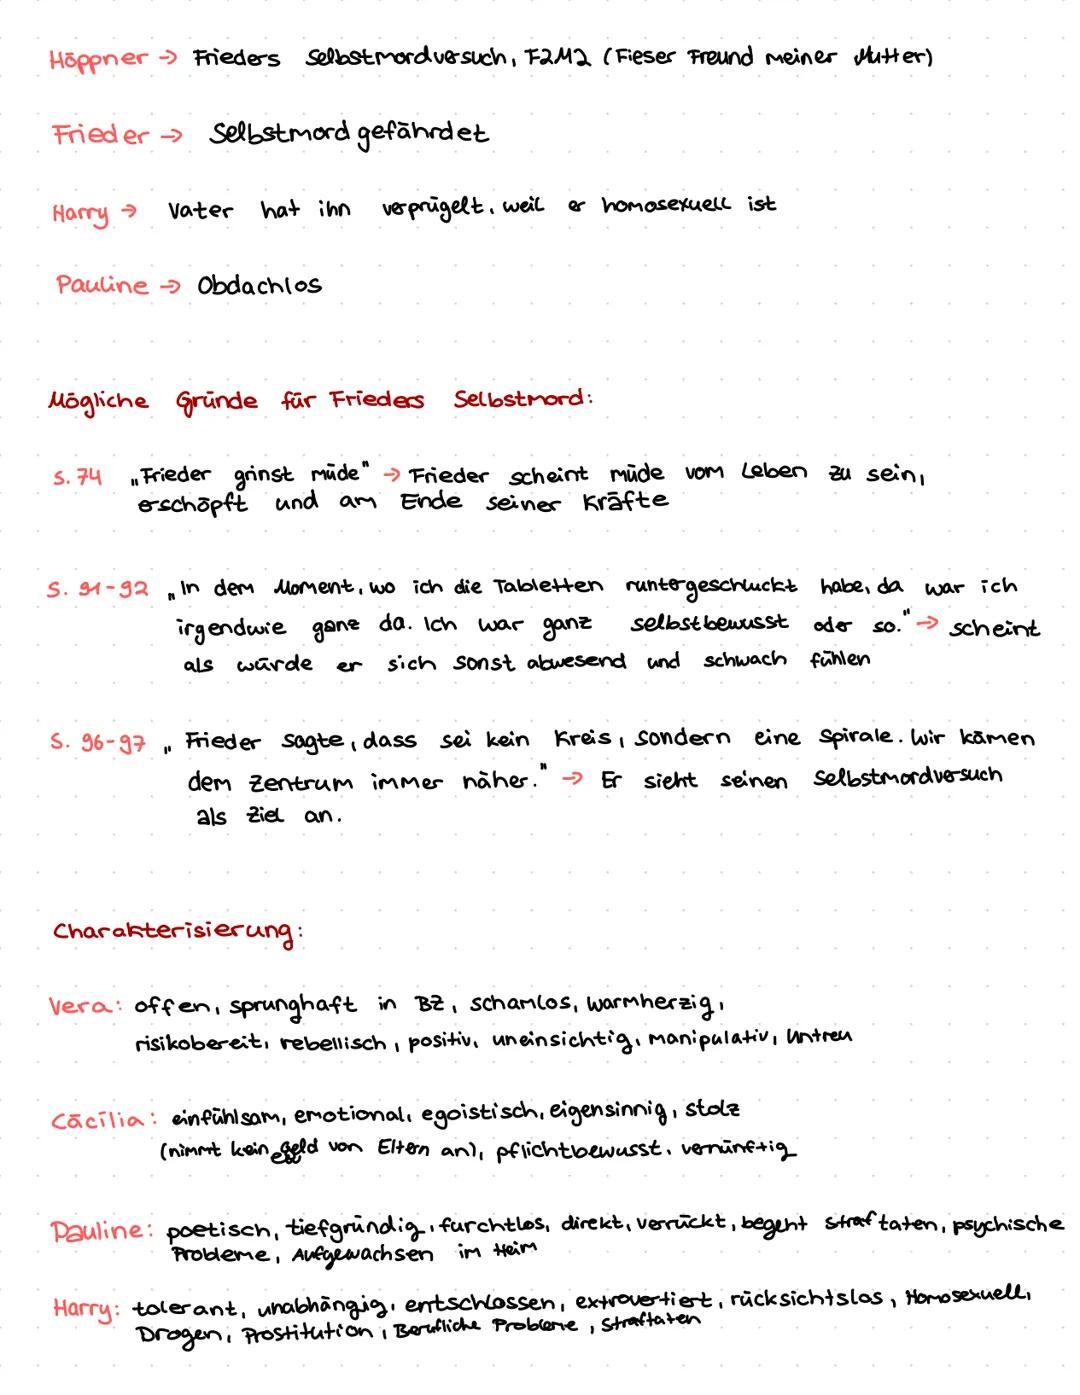 Höppner → Frieders Selbstmordversuch, F2M2 (Fieser Freund meiner Mutter)
Frieder → Selbstmord gefährdet
Harry → Vater hat ihn verprügelt, weil er homosexuell ist
Pauline → Obdachlos
Mögliche Gründe für Frieders Selbstmord:
S. 74 „Frieder grinst müde" → Frieder scheint müde vom Leben zu sein,
erschöpft und am Ende seiner Kräfte
S. 91-92 „In dem Moment, wo ich die Tabletten runtergeschluckt habe, da war ich
irgendwie ganz da. Ich war ganz selbstbewusst oder so." → scheint
als würde er sich sonst abwesend und schwach fühlen
S. 96-97 „Frieder sagte, dass sei kein Kreis, sondern eine Spirale. Wir kämen
dem Zentrum immer näher." → Er sieht seinen Selbstmordversuch
als Ziel an.
Charakterisierung:
Vera: offen, sprunghaft in BZ, schamlos, warmherzig,
risikobereit, rebellisch, positiv, uneinsichtig, manipulativ, Untreu
Cäcilia: einfühlsam, emotional, egoistisch, eigensinnig, stolz
(nimmt kein geld von Eltern an), pflichtbewusst, vernünftig
Pauline: poetisch, tiefgründig, furchtlos, direkt, verrückt, begeht straftaten, psychische
Probleme, Aufgewachsen im Heim
Harry: tolerant, unabhängig, entschlossen, extrovertiert, rücksichtslos, Homosexuell,
Drogen, Prostitution, Berufliche Probleme, Straftaten